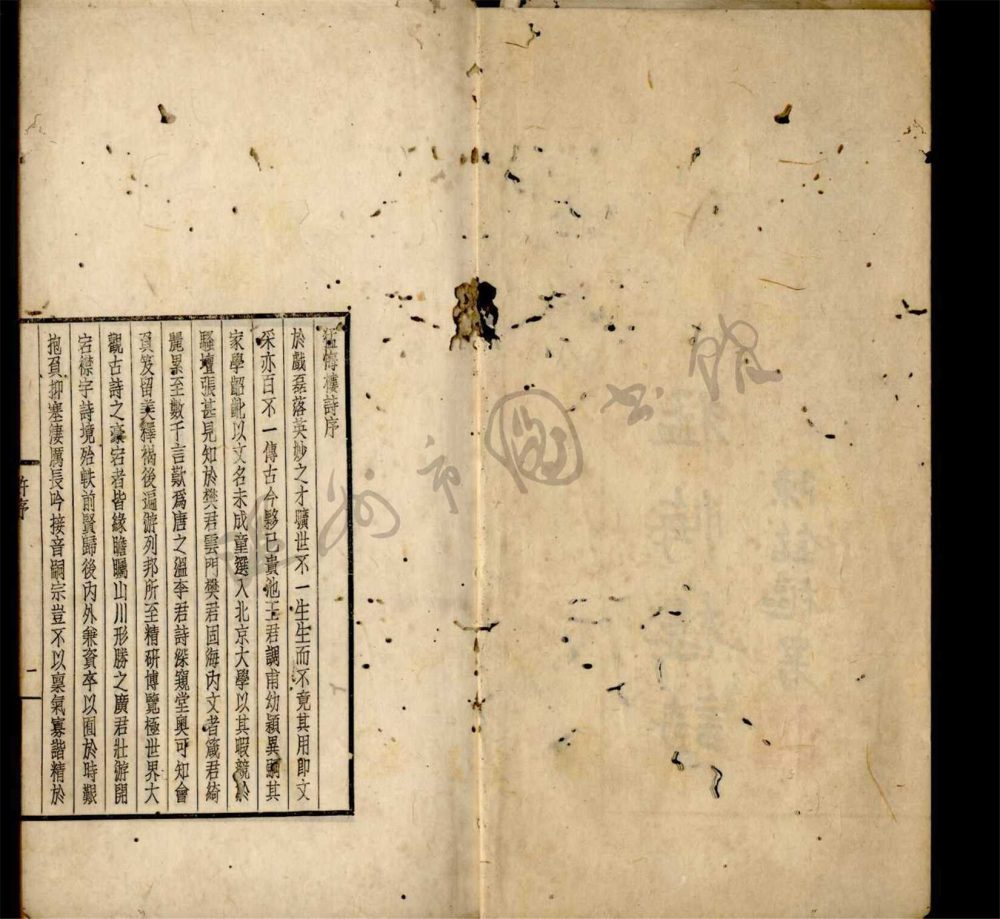 猛悔樓詩序
於戲磊落英妙之才曠世不一生生而不竟其用即文
采亦百不一傳古今夥已貴池王君調甫幼穎異嗣其
家學齠齔以文名未成童選入北京大學以其暇競於
騷壇張甚見知於樊君雲門樊君固海內文者箴君綺
麗累至數千言歎為唐之溫李君詩綜窺堂奧可知會
負笈留美釋褐後遍游列邦所至精研博覽極世界大
觀古詩之豪宕者皆緣瞻矚山川形勝之廣君壯游開
宕襟宇詩境殆軼前賢歸後內外兼資卒以囿於時艱
抱負抑塞淒厲長吟接音嗣宗豈不以稟氣寡諧精於
許序
一
州市圖書館